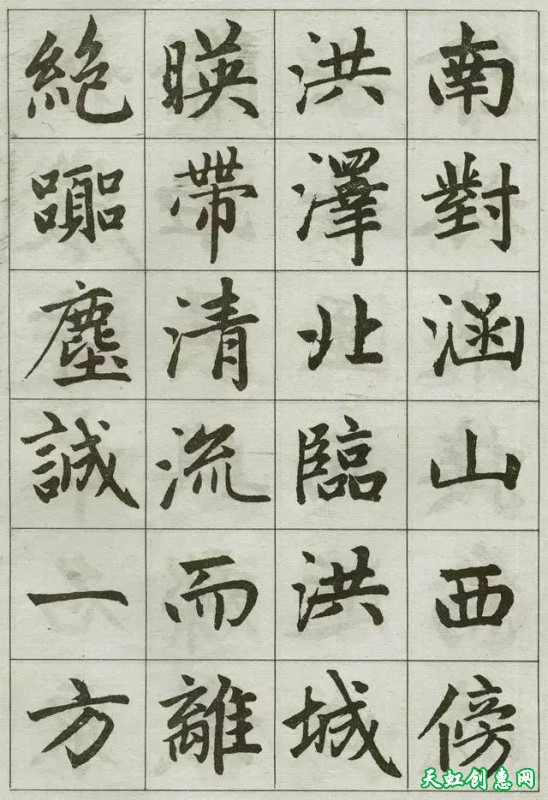 南對涵山西傍
洪澤北臨洪城
暎帶清流而離
絕囂塵誠一方
天虹创惠网